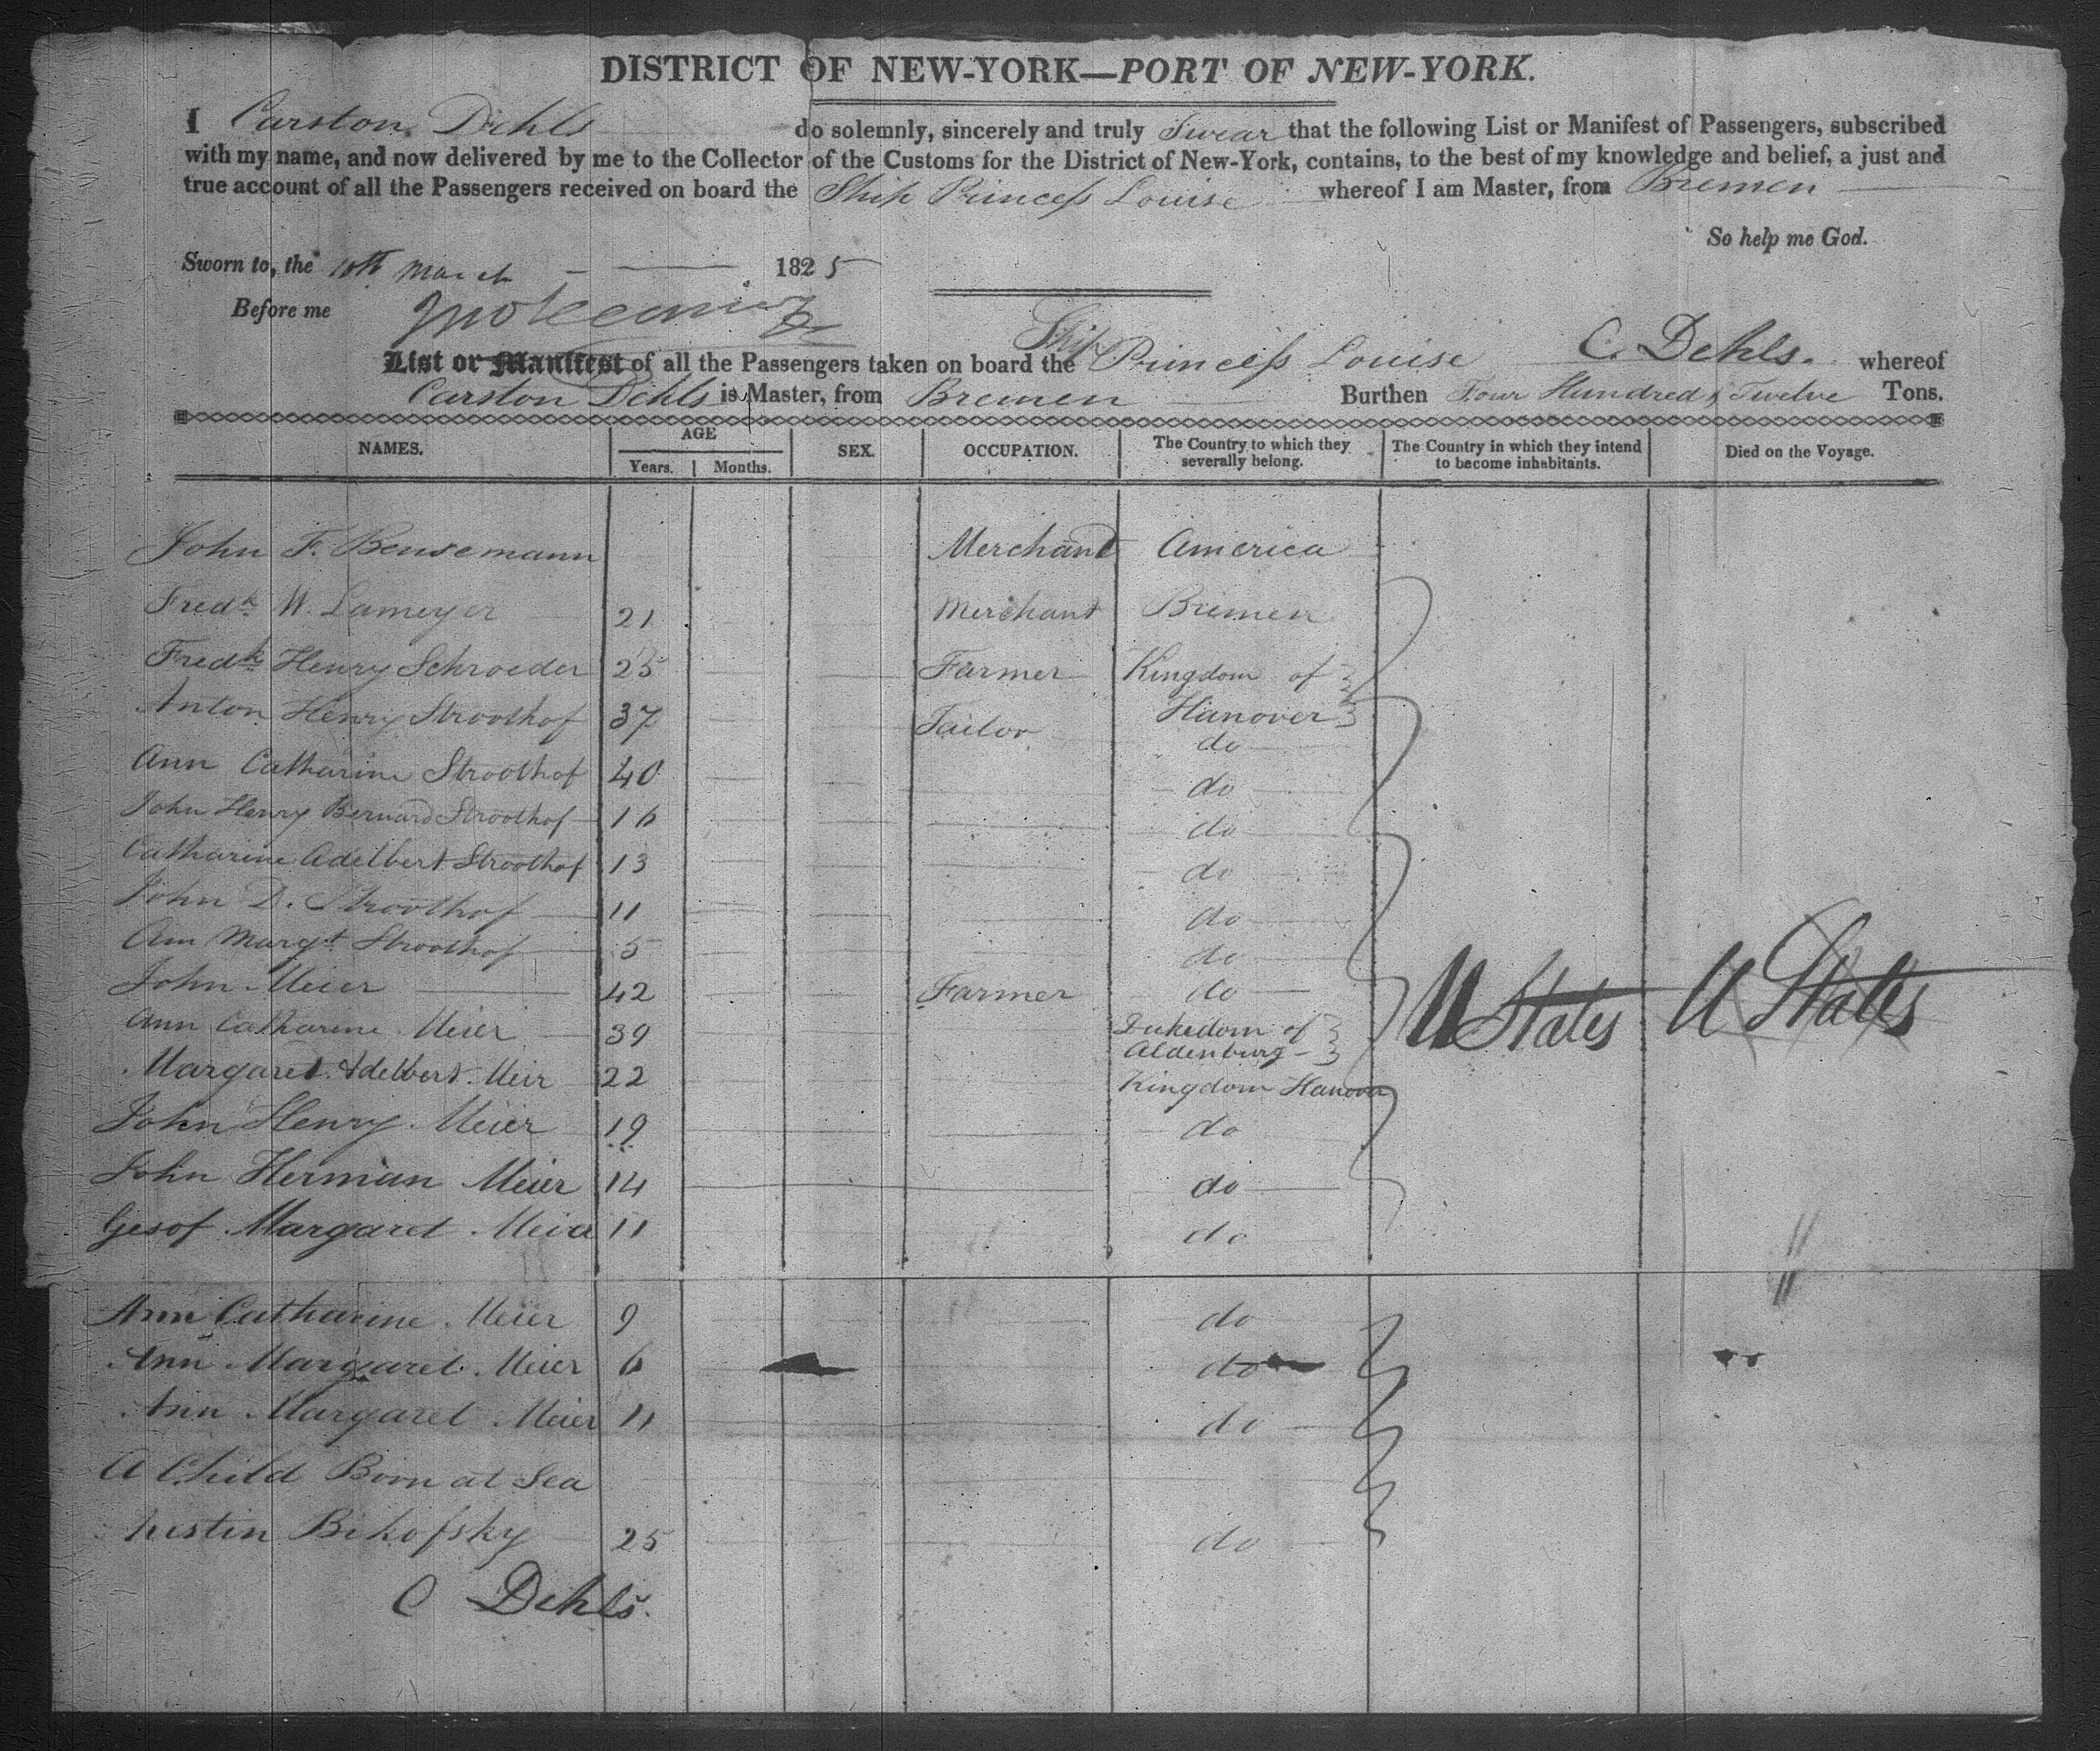 DISTRICT OF NEW-YORK—PORT OF NEW-YORK.
I Carston Dehls do solemnly, sincerely and truly Swear that the following List or Manifest of Passengers, subscribed
with my name, and now delivered by me to the Collector of the Customs for the District of New-York, contains, to the best of my knowledge and belief, a just and
true account of all the Passengers received on board the Ship Princess Louise whereof I am Master, from Bremen
So help me God.
Sworn to, the 10th March 1825
Before me
C. Dehls.
List or Manifest of all the Passengers taken on board the Ship Princess Louise whereof
Carston Dehls is Master, from Bremen Burthen Four Hundred & Twelve Tons.
NAMES. AGE Years. Months. SEX. OCCUPATION. The Country to which they severally belong. The Country in which they intend to become inhabitants. Died on the Voyage.
John F. Bensemann Merchant America
Fredk W. Lameyer 21 Merchant Bremen
Fredk Henry Schroeder 25 Farmer Kingdom of
Hanover
Anton Henry Stroothof 37 Tailor do
Ann Catharine Stroothof 40 do
John Henry Bernard Stroothof 16 do
Catharine Adelbert Stroothof 13 do
John D. Stroothof 11 do
Ann Margt Stroothof 5 do
John Meier 42 Farmer do
Ann Catharine Meier 39 Dukedom of
Aldenburg
U States U States
Margaret Adelbert Meir 22 Kingdom Hanover
John Henry Meier 19 do
John Herman Meier 14 do
Gesof Margaret Meier 11 do
Ann Catharine Meier 9 do
Ann Margaret Meier 6 do
Ann Margaret Meier 11 do
A Child Born at Sea
25 do
C Dehls.